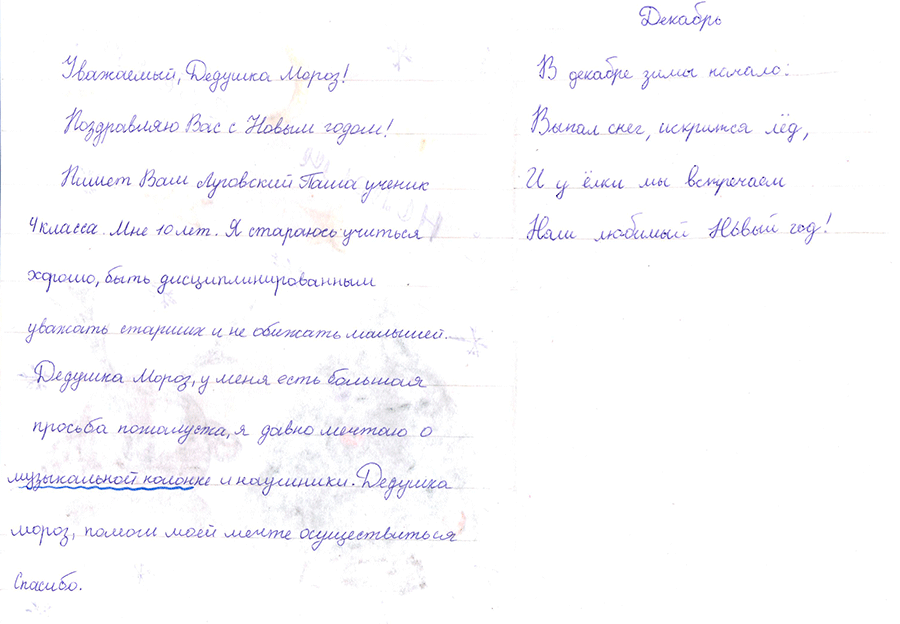 Уважаемый, Дедушка Мороз!
Поздравляю Вас с Новым годом!
Пишет Вам Луговский Паша ученик
4 класса. Мне 10 лет. Я стараюсь учиться
хорошо, быть дисциплинированным
уважать старших и не обижать малышей.
Дедушка Мороз, у меня есть большая
просьба пожалуста, я давно мечтаю о
музыкальной колонке и наушники. Дедушка
мороз, помоги моей мечте осуществиться
Спасибо.
Декабрь
В декабре зимы начало:
Выпал снег, искрится лёд,
И у ёлки мы встречаем
Наш любимый Новый год!